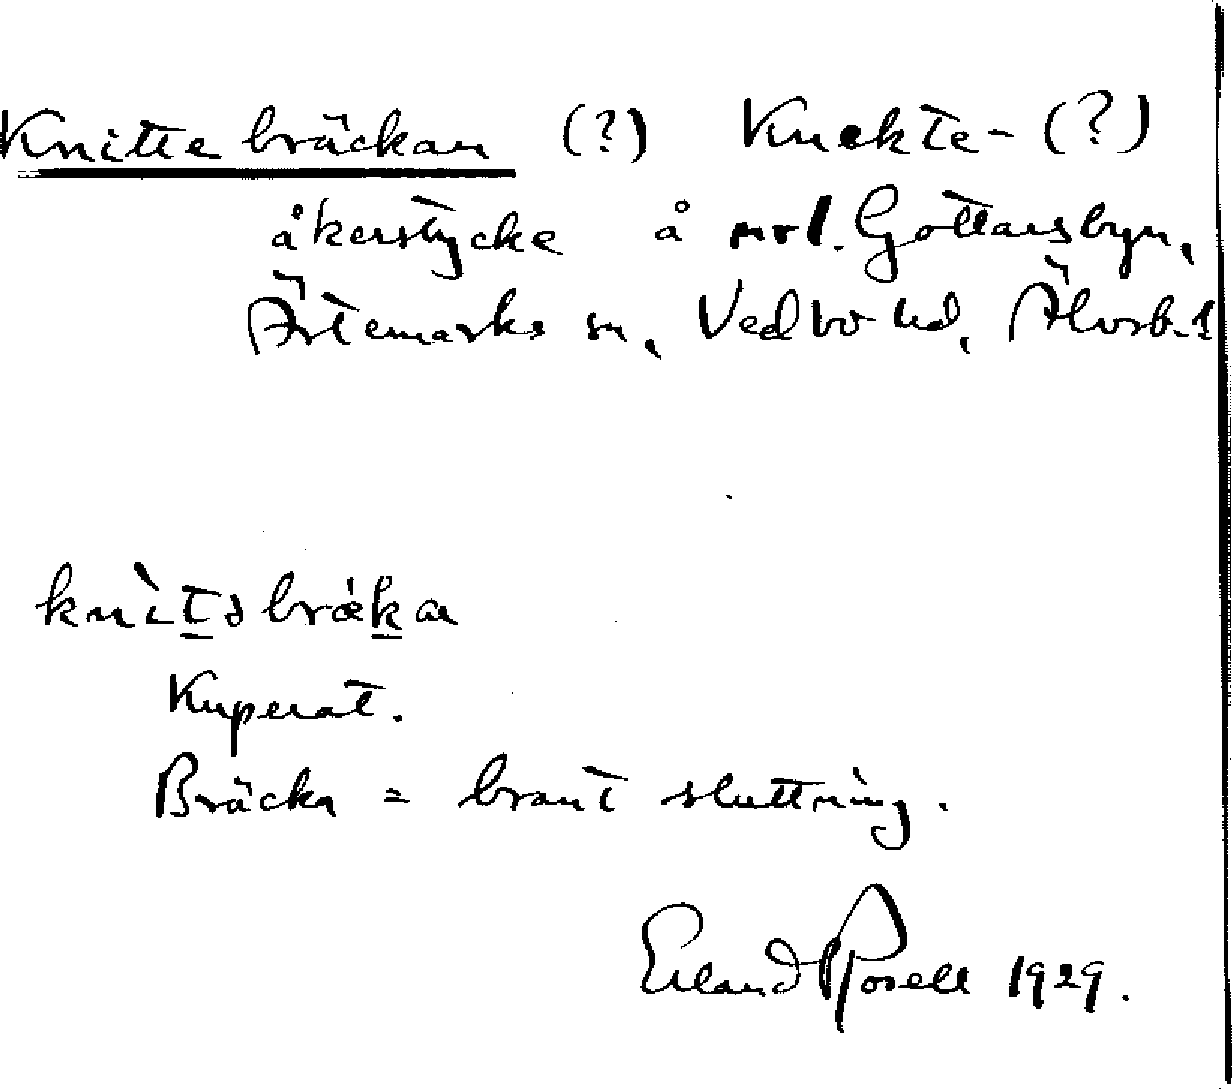 Knittebräckan (?) Knekte- (?)
åkerstycke å nrl. Gottarsbyn,
Ärtemarks sn, Vedbo hd, Älvsb. l
knìtəbrækan
Kuperat.
Bräcka = brant sluttning.
Erland Rosell 1929.